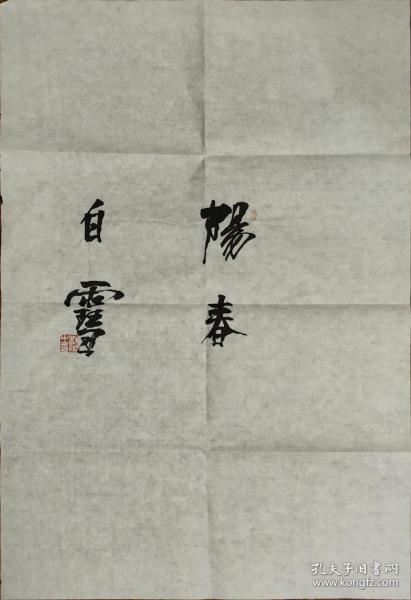 陽春
白雪
孔夫子旧书网
http://www.kongfz.com/